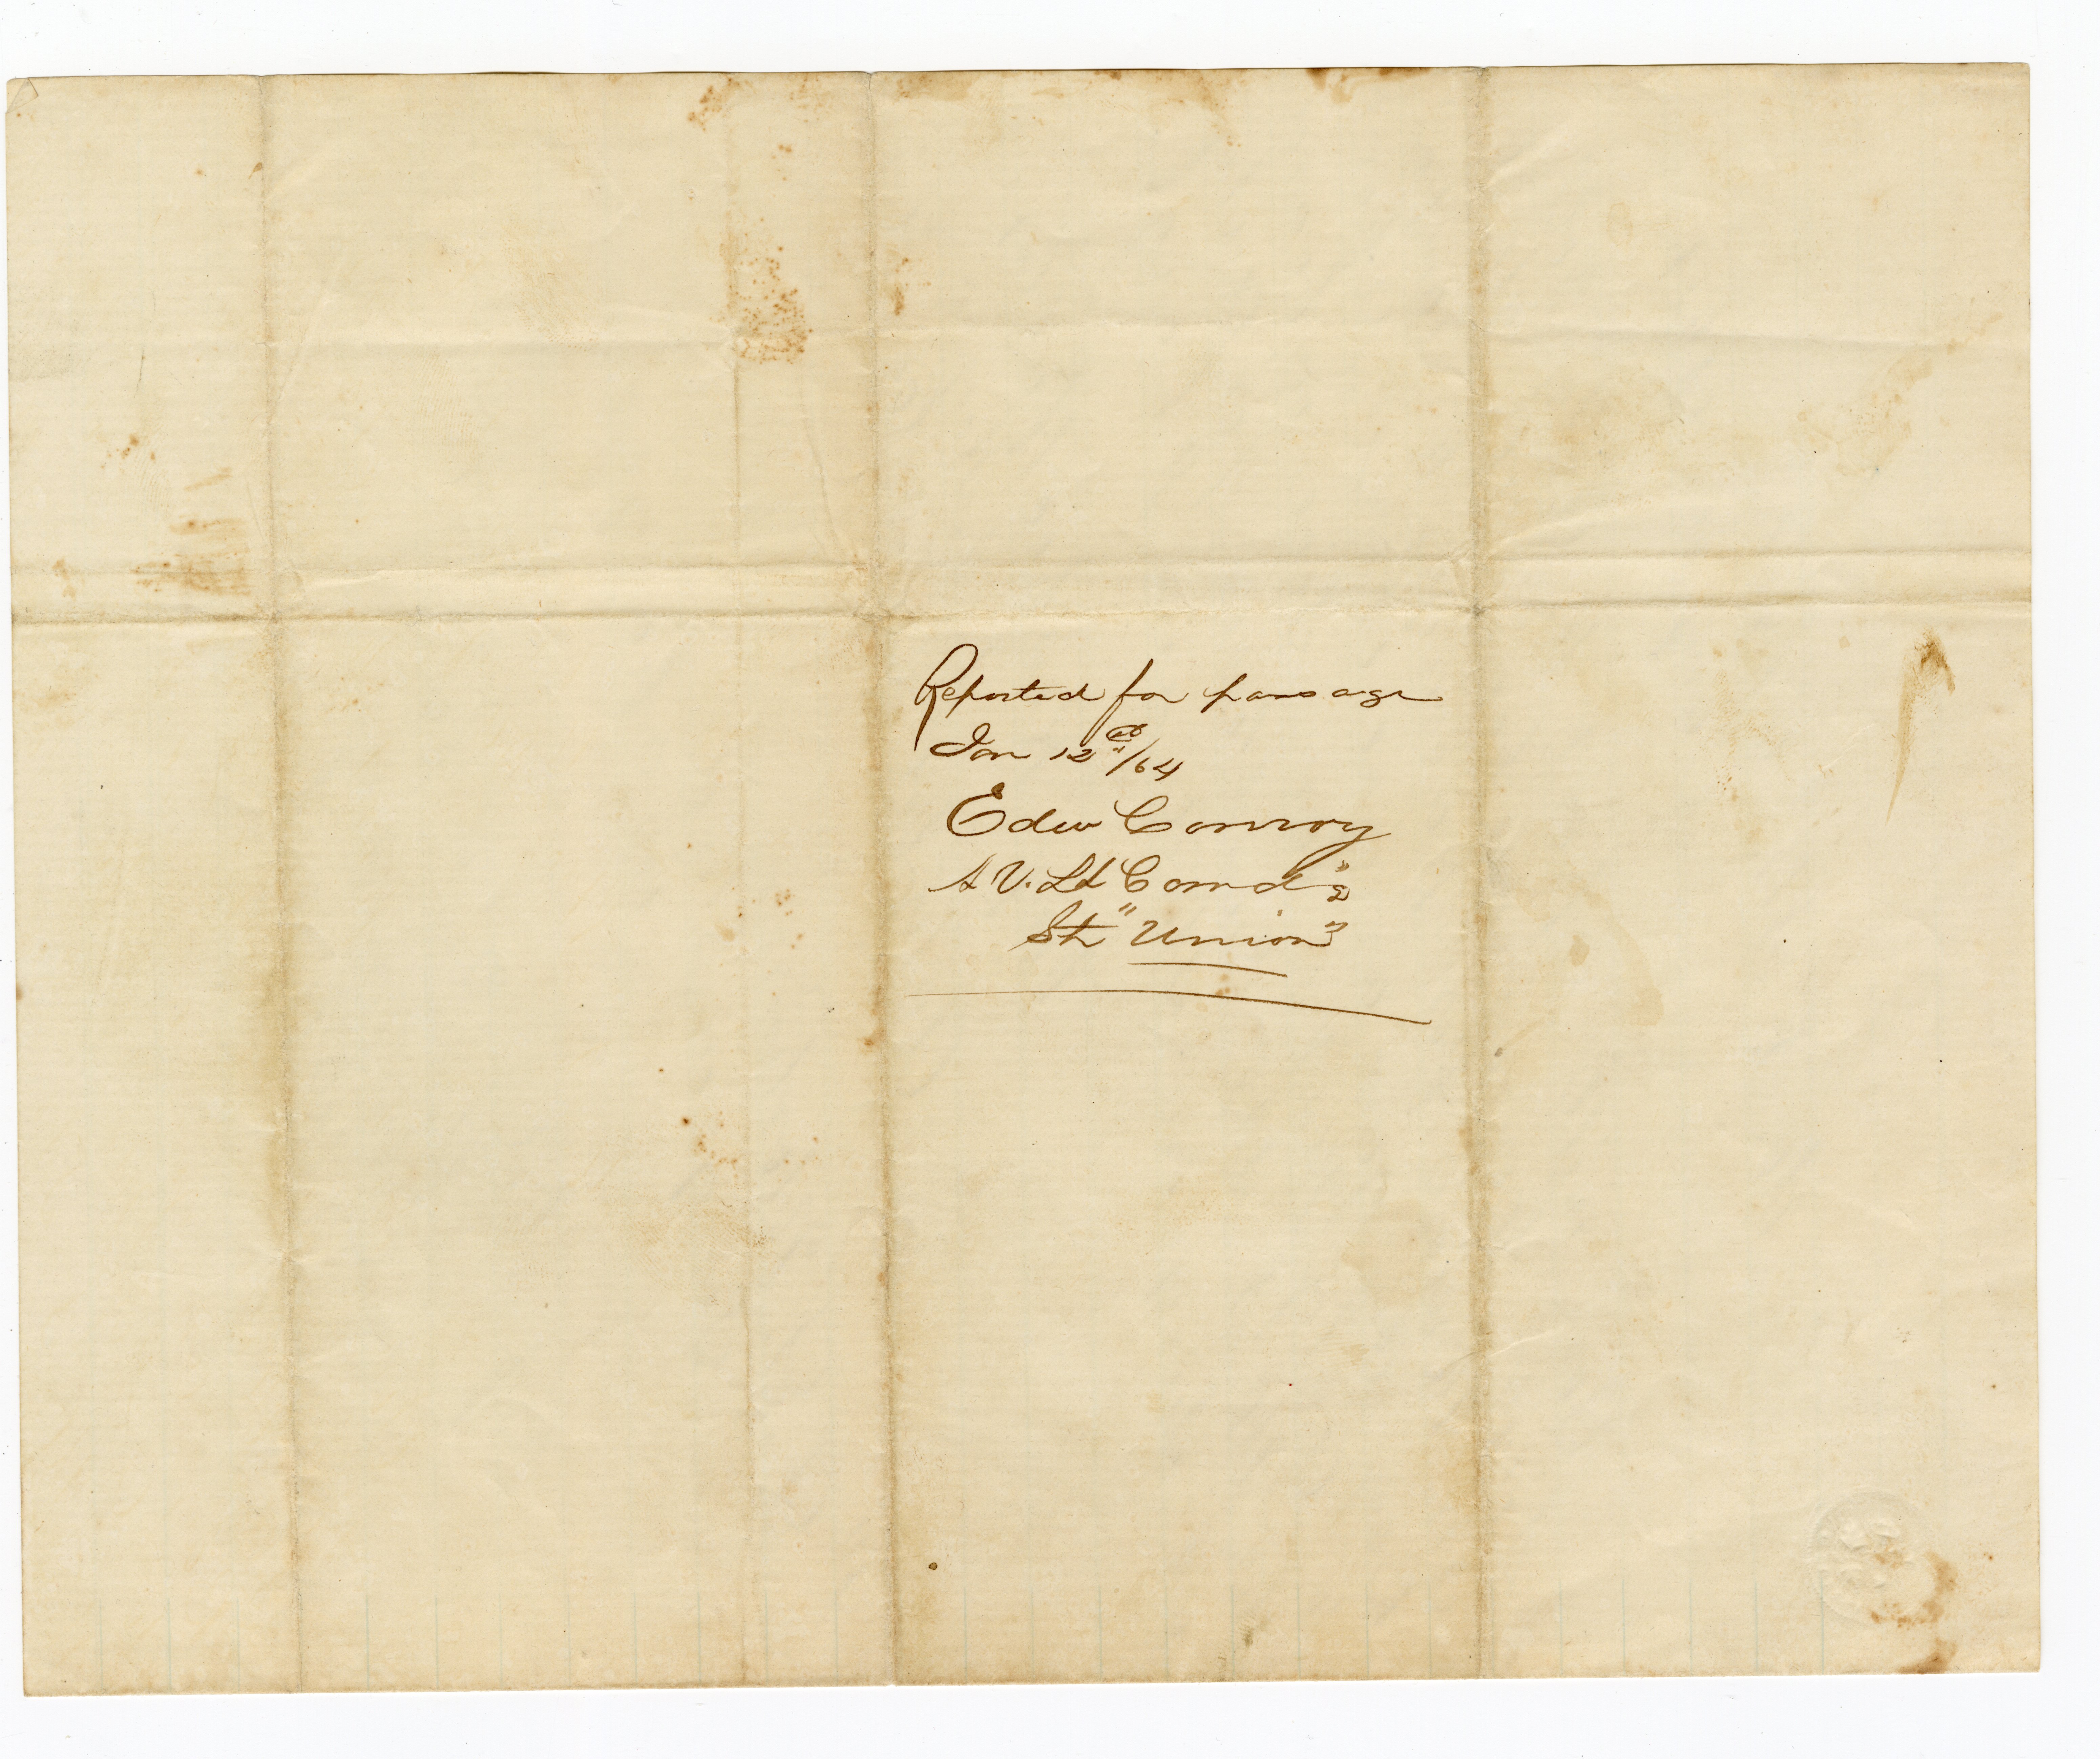 Reported for passage
Jan 12th/64
Edw Conroy
A. V. Lt Comd'g
Str "Union"